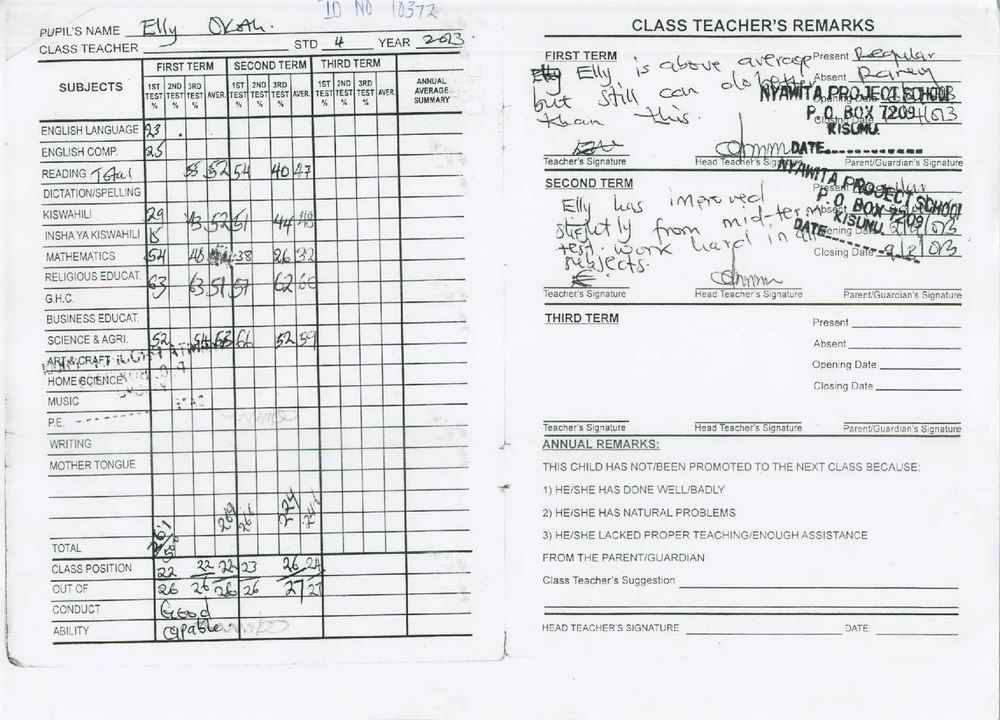 ID NO 10372
PUPIL'S NAME Elly Okoth.
CLASS TEACHER STD 4 YEAR 2013
SUBJECTS FIRST TERM SECOND TERM THIRD TERM ANNUAL AVERAGE SUMMARY
1ST TEST % 2ND TEST % 3RD TEST % AVER. 1ST TEST % 2ND TEST % 3RD TEST % AVER. 1ST TEST % 2ND TEST % 3RD TEST % AVER.
ENGLISH LANGUAGE 23
ENGLISH COMP. 25
READING Total 52 54 40 47
DICTATION/SPELLING
KISWAHILI 29 43 52 51 44 48
INSHA YA KISWAHILI 15
MATHEMATICS 54 48 38 26 32
RELIGIOUS EDUCAT. 63 63 51 57 62 60
G.H.C.
BUSINESS EDUCAT.
SCIENCE & AGRI. 52 54 53 66 52 59
ART & CRAFT
HOME SCIENCE
MUSIC
P.E.
WRITING
MOTHER TONGUE
TOTAL 261
CLASS POSITION 22 22 22 23 26 24
OUT OF 26 26 26 26 27 27
CONDUCT Good
ABILITY Capable
CLASS TEACHER'S REMARKS
FIRST TERM Present Regular
Elly is above average Absent Rarely
but still can do better Opening Date
than this. Closing Date
NYAWITA PROJECT SCHOOL
P. O. BOX 7209
KISUMU.
DATE
Teacher's Signature Head Teacher's Signature Parent/Guardian's Signature
SECOND TERM Present Regular
Elly has improved Absent
slightly from mid-term Opening Date
test. work hard in all Closing Date 9/8/013
subjects.
NYAWITA PROJECT SCHOOL
P. O. BOX 7209
KISUMU.
DATE
Teacher's Signature Head Teacher's Signature Parent/Guardian's Signature
THIRD TERM Present
Absent
Opening Date
Closing Date
Teacher's Signature Head Teacher's Signature Parent/Guardian's Signature
ANNUAL REMARKS:
THIS CHILD HAS NOT/BEEN PROMOTED TO THE NEXT CLASS BECAUSE:
1) HE/SHE HAS DONE WELL/BADLY
2) HE/SHE HAS NATURAL PROBLEMS
3) HE/SHE LACKED PROPER TEACHING/ENOUGH ASSISTANCE
FROM THE PARENT/GUARDIAN
Class Teacher's Suggestion
HEAD TEACHER'S SIGNATURE DATE: